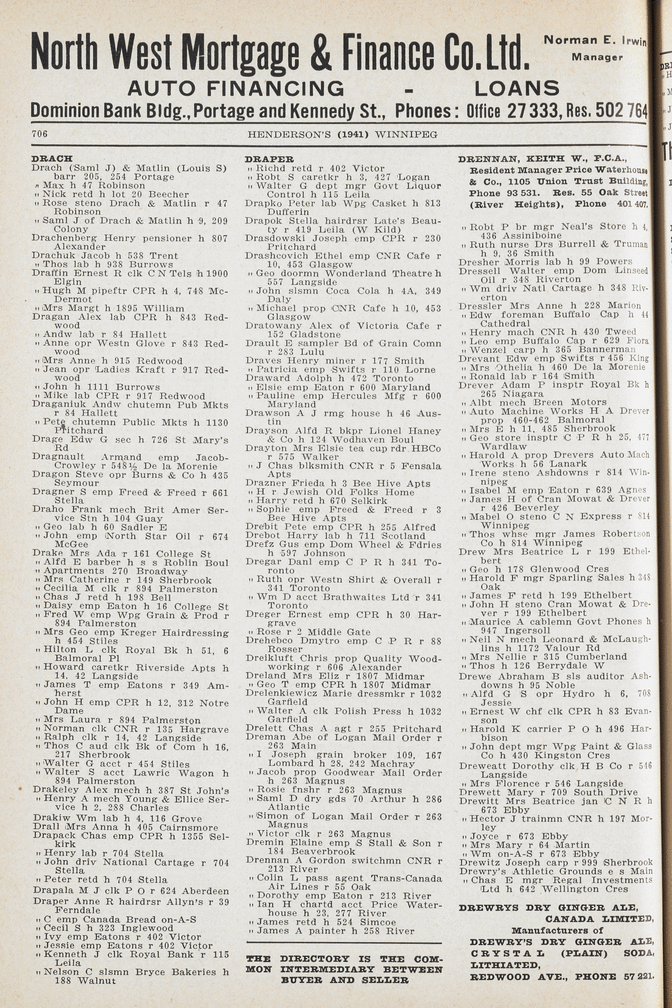 North West Mortgage & Finance Co. Ltd.
Norman E. Irwin
Manager
AUTO FINANCING - LOANS
Dominion Bank Bldg., Portage and Kennedy St., Phones: Office 27 333, Res. 502 764
706 HENDERSON'S (1941) WINNIPEG
DRACH
Drach (Saml J) & Matlin (Louis S)
barr 205, 254 Portage
" Max h 47 Robinson
" Nick retd h lot 20 Beecher
" Rose steno Drach & Matlin r 47
Robinson
" Saml J of Drach & Matlin h 9, 209
Colony
Drachenberg Henry pensioner h 807
Alexander
Drachuk Jacob h 538 Trent
" Thos lab h 938 Burrows
Draffin Ernest R clk C N Tels h 1900
Elgin
" Hugh M pipeftr CPR h 4, 748 Mc-
Dermot
" Mrs Margt h 1895 William
Dragan Alex lab CPR h 843 Red-
wood
" Andw lab r 84 Hallett
" Anne opr Westn Glove r 843 Red-
wood
" Mrs Anne h 915 Redwood
" Jean opr Ladies Kraft r 917 Red-
wood
" John h 1111 Burrows
" Mike lab CPR r 917 Redwood
Draganiuk Andw chutemn Pub Mkts
r 84 Hallett
" Pete chutemn Public Mkts h 1130
Pritchard
Drage Edw G sec h 726 St Mary's
Rd
Dragnault Armand emp Jacob-
Crowley r 548½ De la Morenie
Dragon Steve opr Burns & Co h 435
Seymour
Dragner S emp Freed & Freed r 661
Stella
Draho Frank mech Brit Amer Ser-
vice Stn h 104 Guay
" Geo lab h 60 Sadler E
" John emp North Star Oil r 674
McGee
Drake Mrs Ada r 161 College St
" Alfd E barber h s s Roblin Boul
" Apartments 270 Broadway
" Mrs Catherine r 149 Sherbrook
" Cecilia M clk r 894 Palmerston
" Chas J retd h 198 Bell
" Daisy emp Eaton h 16 College St
" Fred W emp Wpg Grain & Prod r
894 Palmerston
" Mrs Geo emp Kreger Hairdressing
h 454 Stiles
" Hilton L clk Royal Bk h 51, 6
Balmoral Pl
" Howard caretkr Riverside Apts h
14, 42 Langside
" James T emp Eatons r 349 Am-
herst
" John H emp CPR h 12, 312 Notre
Dame
" Mrs Laura r 894 Palmerston
" Norman clk CNR r 135 Hargrave
" Ralph clk r 14, 42 Langside
" Thos C aud clk Bk of Com h 16,
217 Sherbrook
" Walter G acct r 454 Stiles
" Walter S acct Lawric Wagon h
894 Palmerston
Drakeley Alex mech h 387 St John's
" Henry A mech Young & Ellice Ser-
vice h 2, 288 Charles
Drakiw Wm lab h 4, 116 Grove
Drall Mrs Anna h 405 Cairnsmore
Drapack Chas emp CPR h 1355 Sel-
kirk
" Henry lab r 704 Stella
" John driv National Cartage r 704
Stella
" Peter retd h 704 Stella
Drapala M J clk P O r 624 Aberdeen
Draper Anne R hairdrsr Allyn's r 39
Ferndale
" C emp Canada Bread on-A-S
" Cecil S h 323 Inglewood
" Ivy emp Eatons r 402 Victor
" Jessie emp Eatons r 402 Victor
" Kenneth J clk Royal Bank r 115
Leila
" Nelson C slsmn Bryce Bakeries h
188 Walnut
DRAPER
" Richd retd r 402 Victor
" Robt S caretkr h 3, 427 Logan
" Walter G dept mgr Govt Liquor
Control h 115 Leila
Drapko Peter lab Wpg Casket h 813
Dufferin
Drapok Stella hairdrsr Late's Beau-
ty r 419 Leila (W Kild)
Drasdowski Joseph emp CPR r 230
Pritchard
Drashcovich Ethel emp CNR Cafe r
10, 453 Glasgow
" Geo doormn Wonderland Theatre h
557 Langside
" John slsmn Coca Cola h 4A, 349
Daly
" Michael prop CNR Cafe h 10, 453
Glasgow
Dratowany Alex of Victoria Cafe r
152 Gladstone
Drault E sampler Bd of Grain Comn
r 283 Lulu
Draves Henry miner r 177 Smith
" Patricia emp Swifts r 110 Lorne
Draward Adolph h 472 Toronto
" Elsie emp Eaton r 600 Maryland
" Pauline emp Hercules Mfg r 600
Maryland
Drawson A J rmg house h 46 Aus-
tin
Drayson Alfd R bkpr Lionel Haney
& Co h 124 Wodhaven Boul
Drayton Mrs Elsie tea cup rdr HBCo
r 575 Walker
" J Chas blksmith CNR r 5 Fensala
Apts
Drazner Frieda h 3 Bee Hive Apts
" H r Jewish Old Folks Home
" Harry retd h 670 Selkirk
" Sophie emp Freed & Freed r 3
Bee Hive Apts
Drebit Pete emp CPR h 255 Alfred
Drebot Harry lab h 711 Scotland
Drefz Gus emp Dom Wheel & Fdries
h 597 Johnson
Dregar Danl emp C P R h 341 To-
ronto
" Ruth opr Westn Shirt & Overall r
341 Toronto
" Wm D acct Brathwaites Ltd r 341
Toronto
Dreger Ernest emp CPR h 30 Har-
grave
" Rose r 2 Middle Gate
Drehebco Dmytro emp C P R r 88
Rosser
Dreikluft Chris prop Quality Wood-
working r 606 Alexander
Dreland Mrs Eliz r 1807 Midmar
" Geo T emp CPR h 1807 Midmar
Drelenkiewicz Marie dressmkr r 1032
Garfield
" Walter A clk Polish Press h 1032
Garfield
Drelett Chas A agt r 255 Pritchard
Dreman Abe of Logan Mail Order r
263 Main
" I Joseph grain broker 109, 167
Lombard h 28, 242 Machray
" Jacob prop Goodwear Mail Order
h 263 Magnus
" Rosie fnshr r 263 Magnus
" Saml D dry gds 70 Arthur h 286
Atlantic
" Simon of Logan Mail Order r 263
Magnus
" Victor clk r 263 Magnus
Dremin Elaine emp S Stall & Son r
184 Beaverbrook
Drennan A Gordon switchmn CNR r
213 River
" Colin L pass agent Trans-Canada
Air Lines r 55 Oak
" Dorothy emp Eaton r 213 River
" Ian H chartd acct Price Water-
house h 23, 277 River
" James retd h 524 Simcoe
" James A painter h 258 River
THE DIRECTORY IS THE COM-
MON INTERMEDIARY BETWEEN
BUYER AND SELLER
DRENNAN, KEITH W., F.C.A.,
Resident Manager Price Waterhouse
& Co., 1105 Union Trust Building,
Phone 93 531. Res. 55 Oak Street
(River Heights), Phone 401 407.
" Robt P br mgr Neal's Store h 4,
436 Assiniboine
" Ruth nurse Drs Burrell & Truman
h 9, 36 Smith
Dresher Morris lab h 99 Powers
Dressell Walter emp Dom Linseed
Oil r 348 Riverton
" Wm driv Natl Cartage h 348 Riv-
erton
Dressler Mrs Anne h 228 Marion
" Edw foreman Buffalo Cap h 44
Cathedral
" Henry mach CNR h 430 Tweed
" Leo emp Buffalo Cap r 629 Flora
" Wenzel carp h 365 Bannerman
Drevant Edw emp Swifts r 456 King
" Mrs Othelia h 460 De la Morenie
" Ronald lab r 164 Smith
Drever Adam P insptr Royal Bk h
265 Niagara
" Albt mech Breen Motors
" Auto Machine Works H A Drever
prop 460-462 Balmoral
" Mrs E h 11, 485 Sherbrook
" Geo store insptr C P R h 25, 477
Wardlaw
" Harold A prop Drevers Auto Mach
Works h 56 Lanark
" Irene steno Ashdowns r 814 Win-
nipeg
" Isabel M emp Eaton r 639 Agnes
" James H of Cran Mowat & Drever
r 426 Beverley
" Mabel O steno C N Express r 814
Winnipeg
" Thos whse mgr James Robertson
Co h 814 Winnipeg
Drew Mrs Beatrice L r 199 Ethel-
bert
" Geo h 178 Glenwood Cres
" Harold F mgr Sparling Sales h 348
Oak
" James F retd h 199 Ethelbert
" John H steno Cran Mowat & Dre-
ver r 199 Ethelbert
" Maurice A cablemn Govt Phones h
947 Ingersoll
" Neil N mech Leonard & McLaugh-
lins h 1172 Valour Rd
" Mrs Nellie r 315 Cumberland
" Thos h 126 Berrydale W
Drewe Abraham B sls auditor Ash-
downs h 95 Noble
" Alfd G S opr Hydro h 6, 708
Jessie
" Ernest W chf clk CPR h 83 Evan-
son
" Harold K carrier P O h 496 Har-
bison
" John dept mgr Wpg Paint & Glass
Co h 430 Kingston Cres
Dreweatt Dorothy clk H B Co r 546
Langside
" Mrs Florence r 546 Langside
Drewett Mary r 709 South Drive
Drewitt Mrs Beatrice jan C N R h
673 Ebby
" Hector J trainmn CNR h 197 Mor-
ley
" Joyce r 673 Ebby
" Mrs Mary r 64 Martin
" Wm on-A-S r 673 Ebby
Drewitz Joseph carp r 999 Sherbrook
Drewry's Athletic Grounds e s Main
" Chas E mgr Regal Investments
Ltd h 642 Wellington Cres
DREWRYS DRY GINGER ALE,
CANADA LIMITED,
Manufacturers of
DREWRY'S DRY GINGER ALE,
CRYSTAL (PLAIN) SODA,
LITHIATED,
REDWOOD AVE., PHONE 57 221.